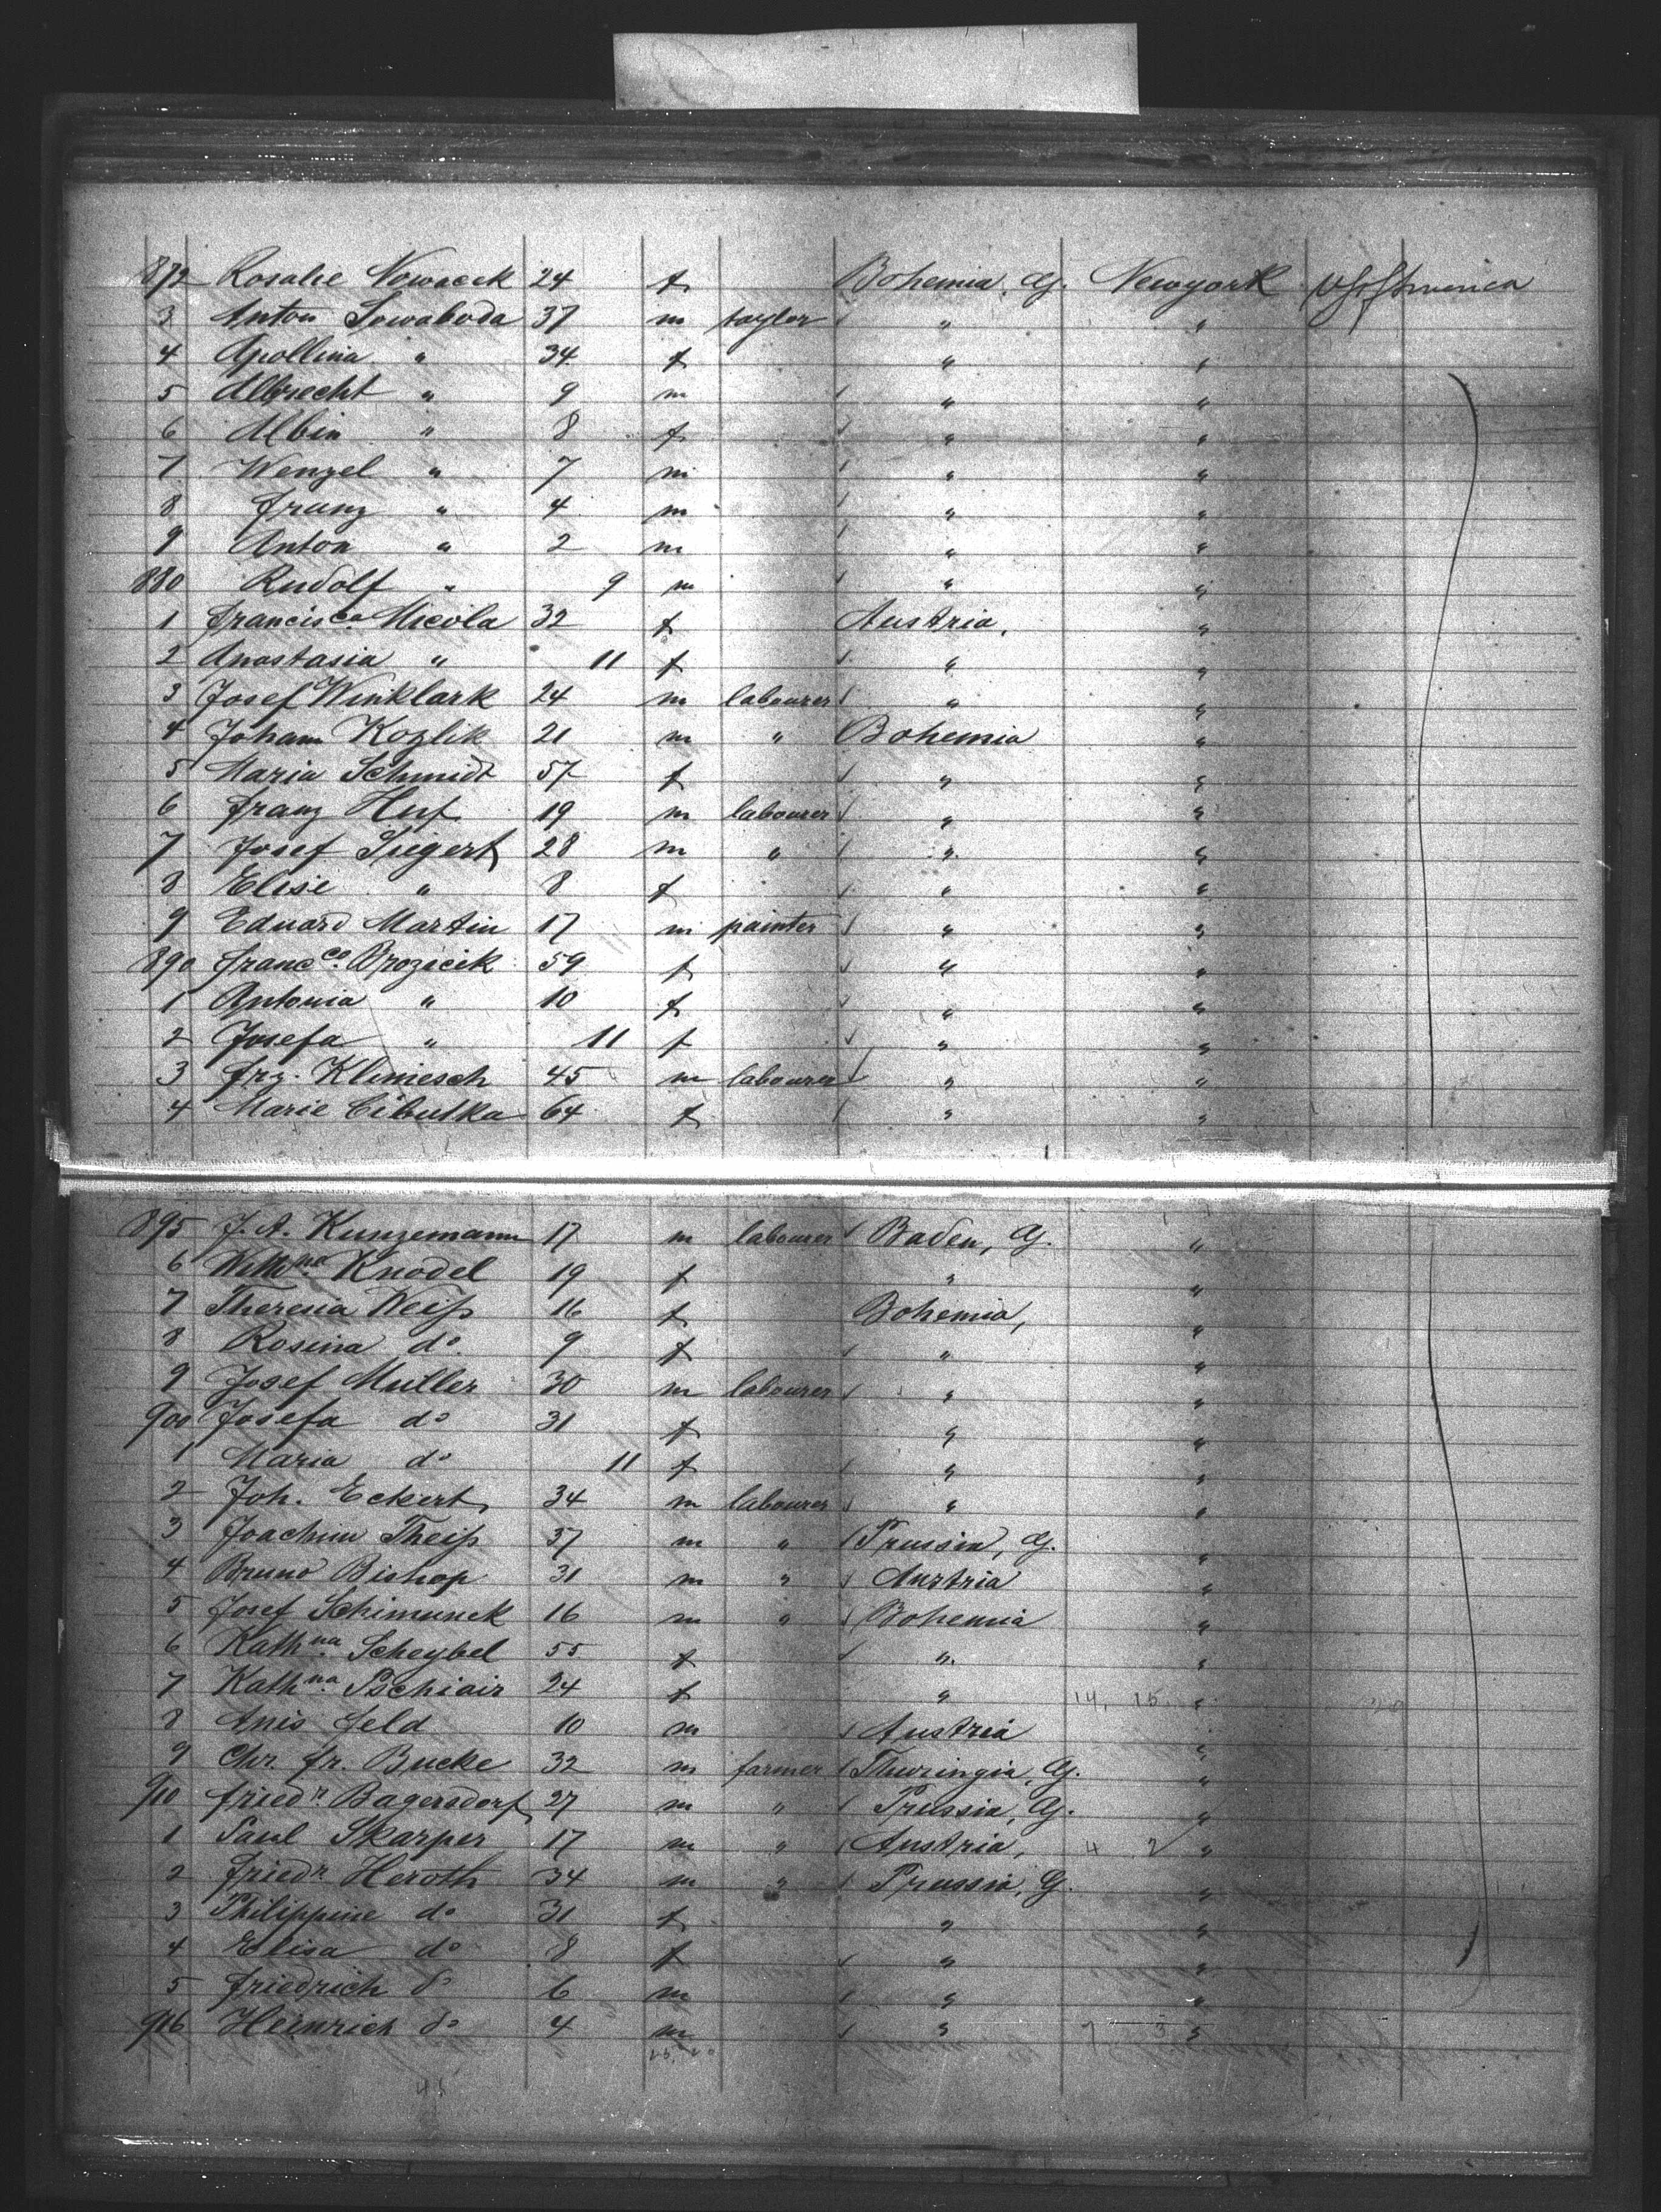 872 Rosalie Nowacek 24 f Bohemia, G. Newyork US of America
3 Anton Sowaboda 37 m taylor " "
4 Apollina " 34 f " "
5 Albrecht " 9 m " "
6 Albin " 8 f " "
7 Wenzel " 7 m " "
8 Franz " 4 m " "
9 Anton " 2 m " "
880 Rudolf " 9 m " "
1 Francisca Micola 32 f Austria, "
2 Anastasia " 11 f " "
3 Josef Winklark 24 m labourer " "
4 Johann Kozlik 21 m " Bohemia "
5 Maria Schmidt 57 f " "
6 Franz Huf 19 m labourer " "
7 Josef Siegert 28 m " " "
8 Elise " 8 f " "
9 Eduard Martin 17 m painter " "
890 Franc ca. Brozicik 59 f " "
1 Antonia " 10 f " "
2 Josefa " 11 f " "
3 Frz. Klimesch 45 m labourer " "
4 Marie Cibulka 64 f " "
895 J. A. Kunzemann 17 m labourer Baden, G. "
6 Wilhne Knodel 19 f " "
7 Theresia Weiß 16 f Bohemia, "
8 Rosina do. 9 f " "
9 Josef Muller 30 m labourer " "
900 Josefa do 31 f " "
1 Maria do 11 f " "
2 Joh. Eckert 34 m labourer " "
3 Joachim Theiß 37 m " Prussia, G. "
4 Bruno Bishop 31 m " Austria "
5 Josef Schimunek 16 m " Bohemia "
6 Kathna Scheybel 55 f " "
7 Kathna Pschiair 24 f " 14, 15 "
8 Anis Feld 10 m Austria "
9 Chr. Fr. Bucke 32 m farmer Thuringia, G. "
910 Friedr. Bagersdorf 27 m " Prussia, G. "
1 Paul Skarper 17 m " Austria, 4 2 "
2 Friedr. Heroth 34 m " Prussia, G. "
3 Philippine do 31 f " "
4 Elisa do 8 f " "
5 Friedrich do 6 m " "
916 Heinrich do 4 m " 7 3 "
45